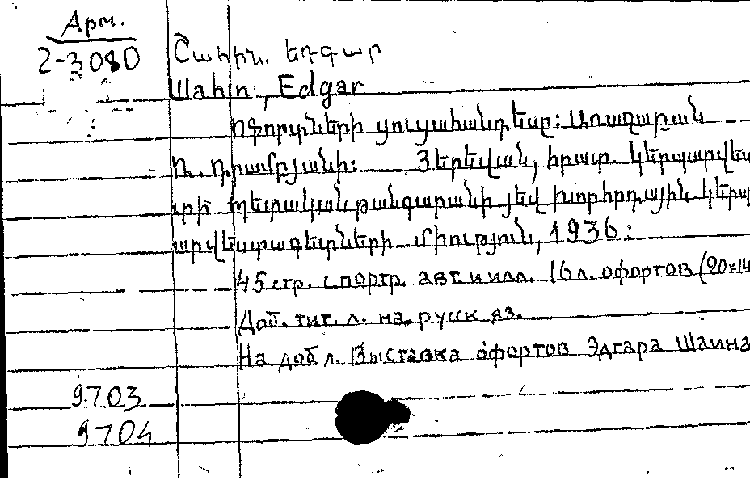 Арм.
2-3080
Շահին. եդգար
Шahin, Edgar
ոֆորտների ցուցահանդեսը: Առաջաբան
Ռ. դրամբյանի: Յերեվան, հրատ. կերպարվես
տի պետական թանգարանի յեվ խորհրդային կերպ
արվեստագետների միություն, 1936:
45 стр. с портр. авт. и илл. 16 л. офортов (20×14
Доб. тит. л. на русск яз.
На доб л. Выставка офортов Эдгара Шаина
9703
9704